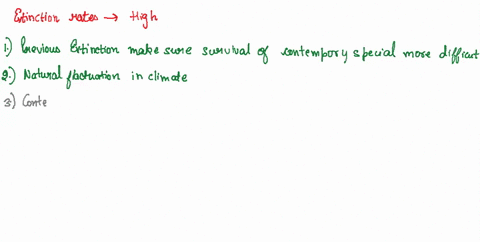 Extinction rates → High
1.) Previous Extinction make sure survival of contempory special more difficut
2.) Natural fluctuation in climate
3.) Conte